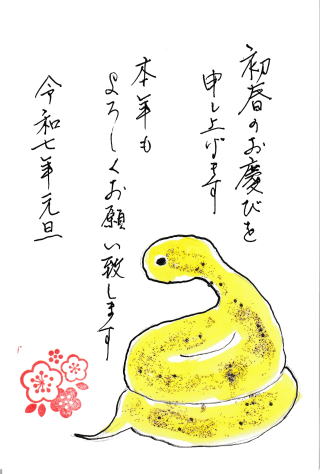 初春のお慶びを
申し上げます
本年も
よろしくお願い致します
令和七年元旦